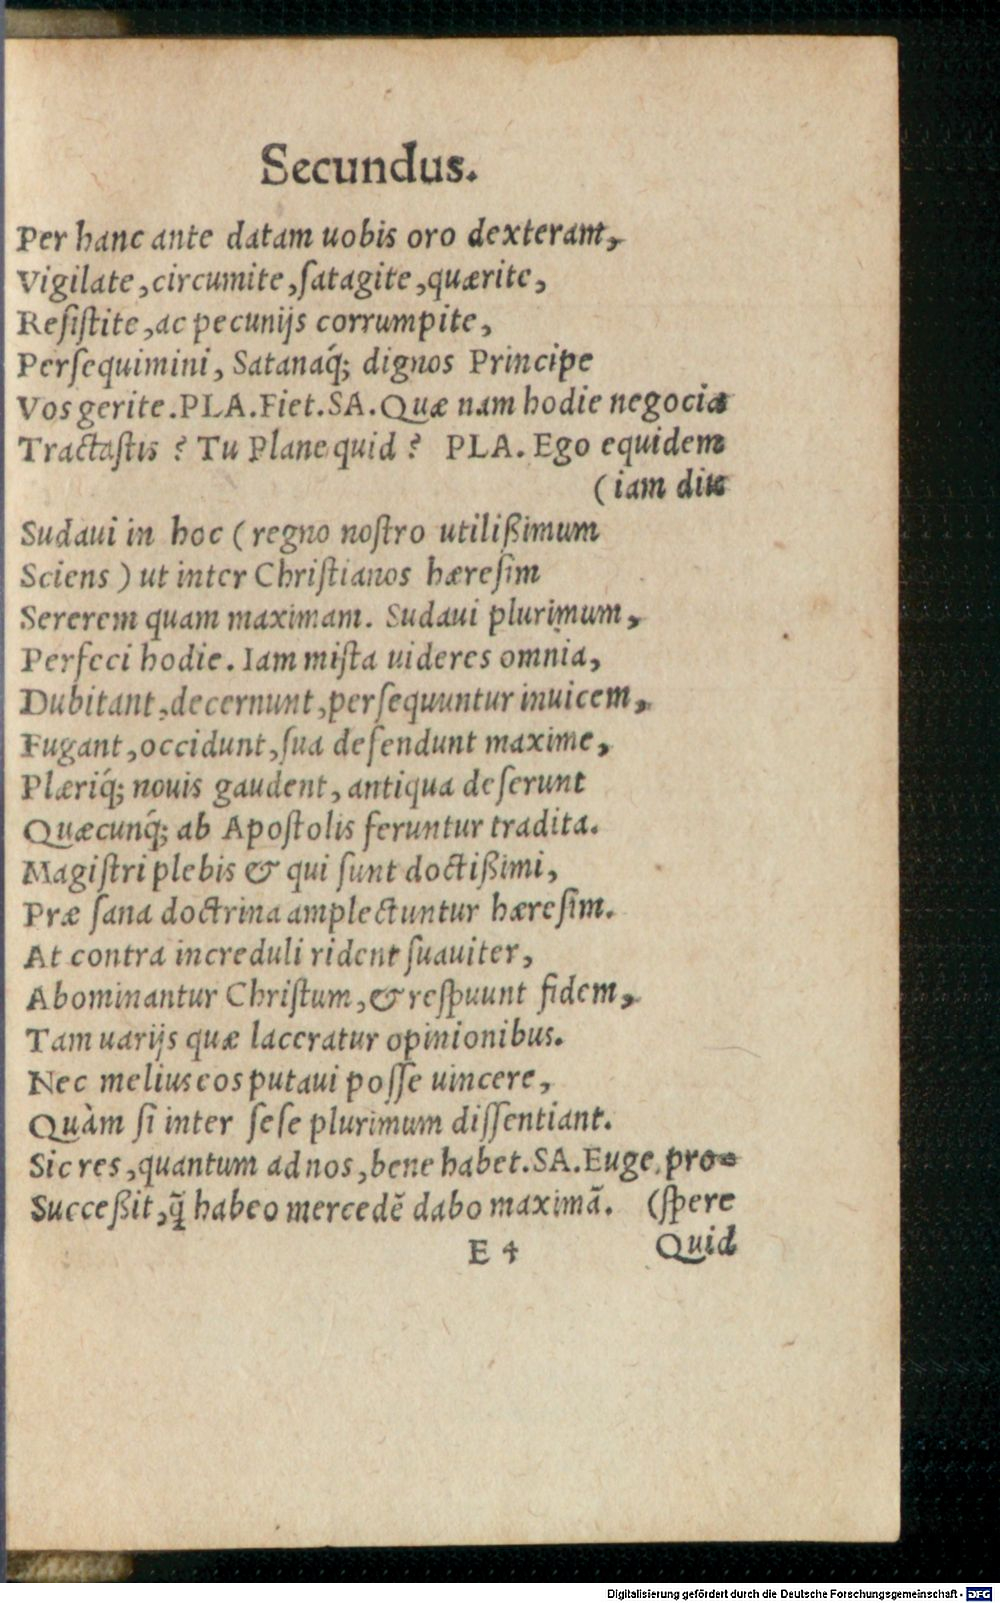 Secundus.
Per hanc ante datam uobis oro dexteram,
Vigilate, circumite, ſatagite, quærite,
Reſiſtite, ac pecunijs corrumpite,
Perſequimini, Satanaq́; dignos Principe
Vos gerite. PLA. Fiet. SA. Quæ nam hodie negocia
Tractaſtis ? Tu Plane quid ? PLA. Ego equidem
(iam diu
Sudaui in hoc (regno noſtro utilißimum
Sciens) ut inter Chriſtianos hæreſim
Sererem quam maximam. Sudaui plurimum,
Perfeci hodie. Iam miſta uideres omnia,
Dubitant, decernunt, perſequuntur inuicem,
Fugant, occidunt, ſua defendunt maxime,
Plæriq́; nouis gaudent, antiqua deſerunt
Quæcunq́; ab Apoſtolis feruntur tradita.
Magiſtri plebis & qui ſunt doctißimi,
Præ ſana doctrina amplectuntur hæreſim.
At contra increduli rident ſuauiter,
Abominantur Chriſtum, & reſpuunt fidem,
Tam uarijs quæ laceratur opinionibus.
Nec melius eos putaui poſſe uincere,
Quàm ſi inter ſeſe plurimum diſſentiant.
Sic res, quantum ad nos, bene habet. SA. Euge, pro-
Succeßit, q̃ habeo mercedẽ dabo maximã. (ſpere
E 4 Quid
Digitalisierung gefördert durch die Deutsche Forschungsgemeinschaft - DFG